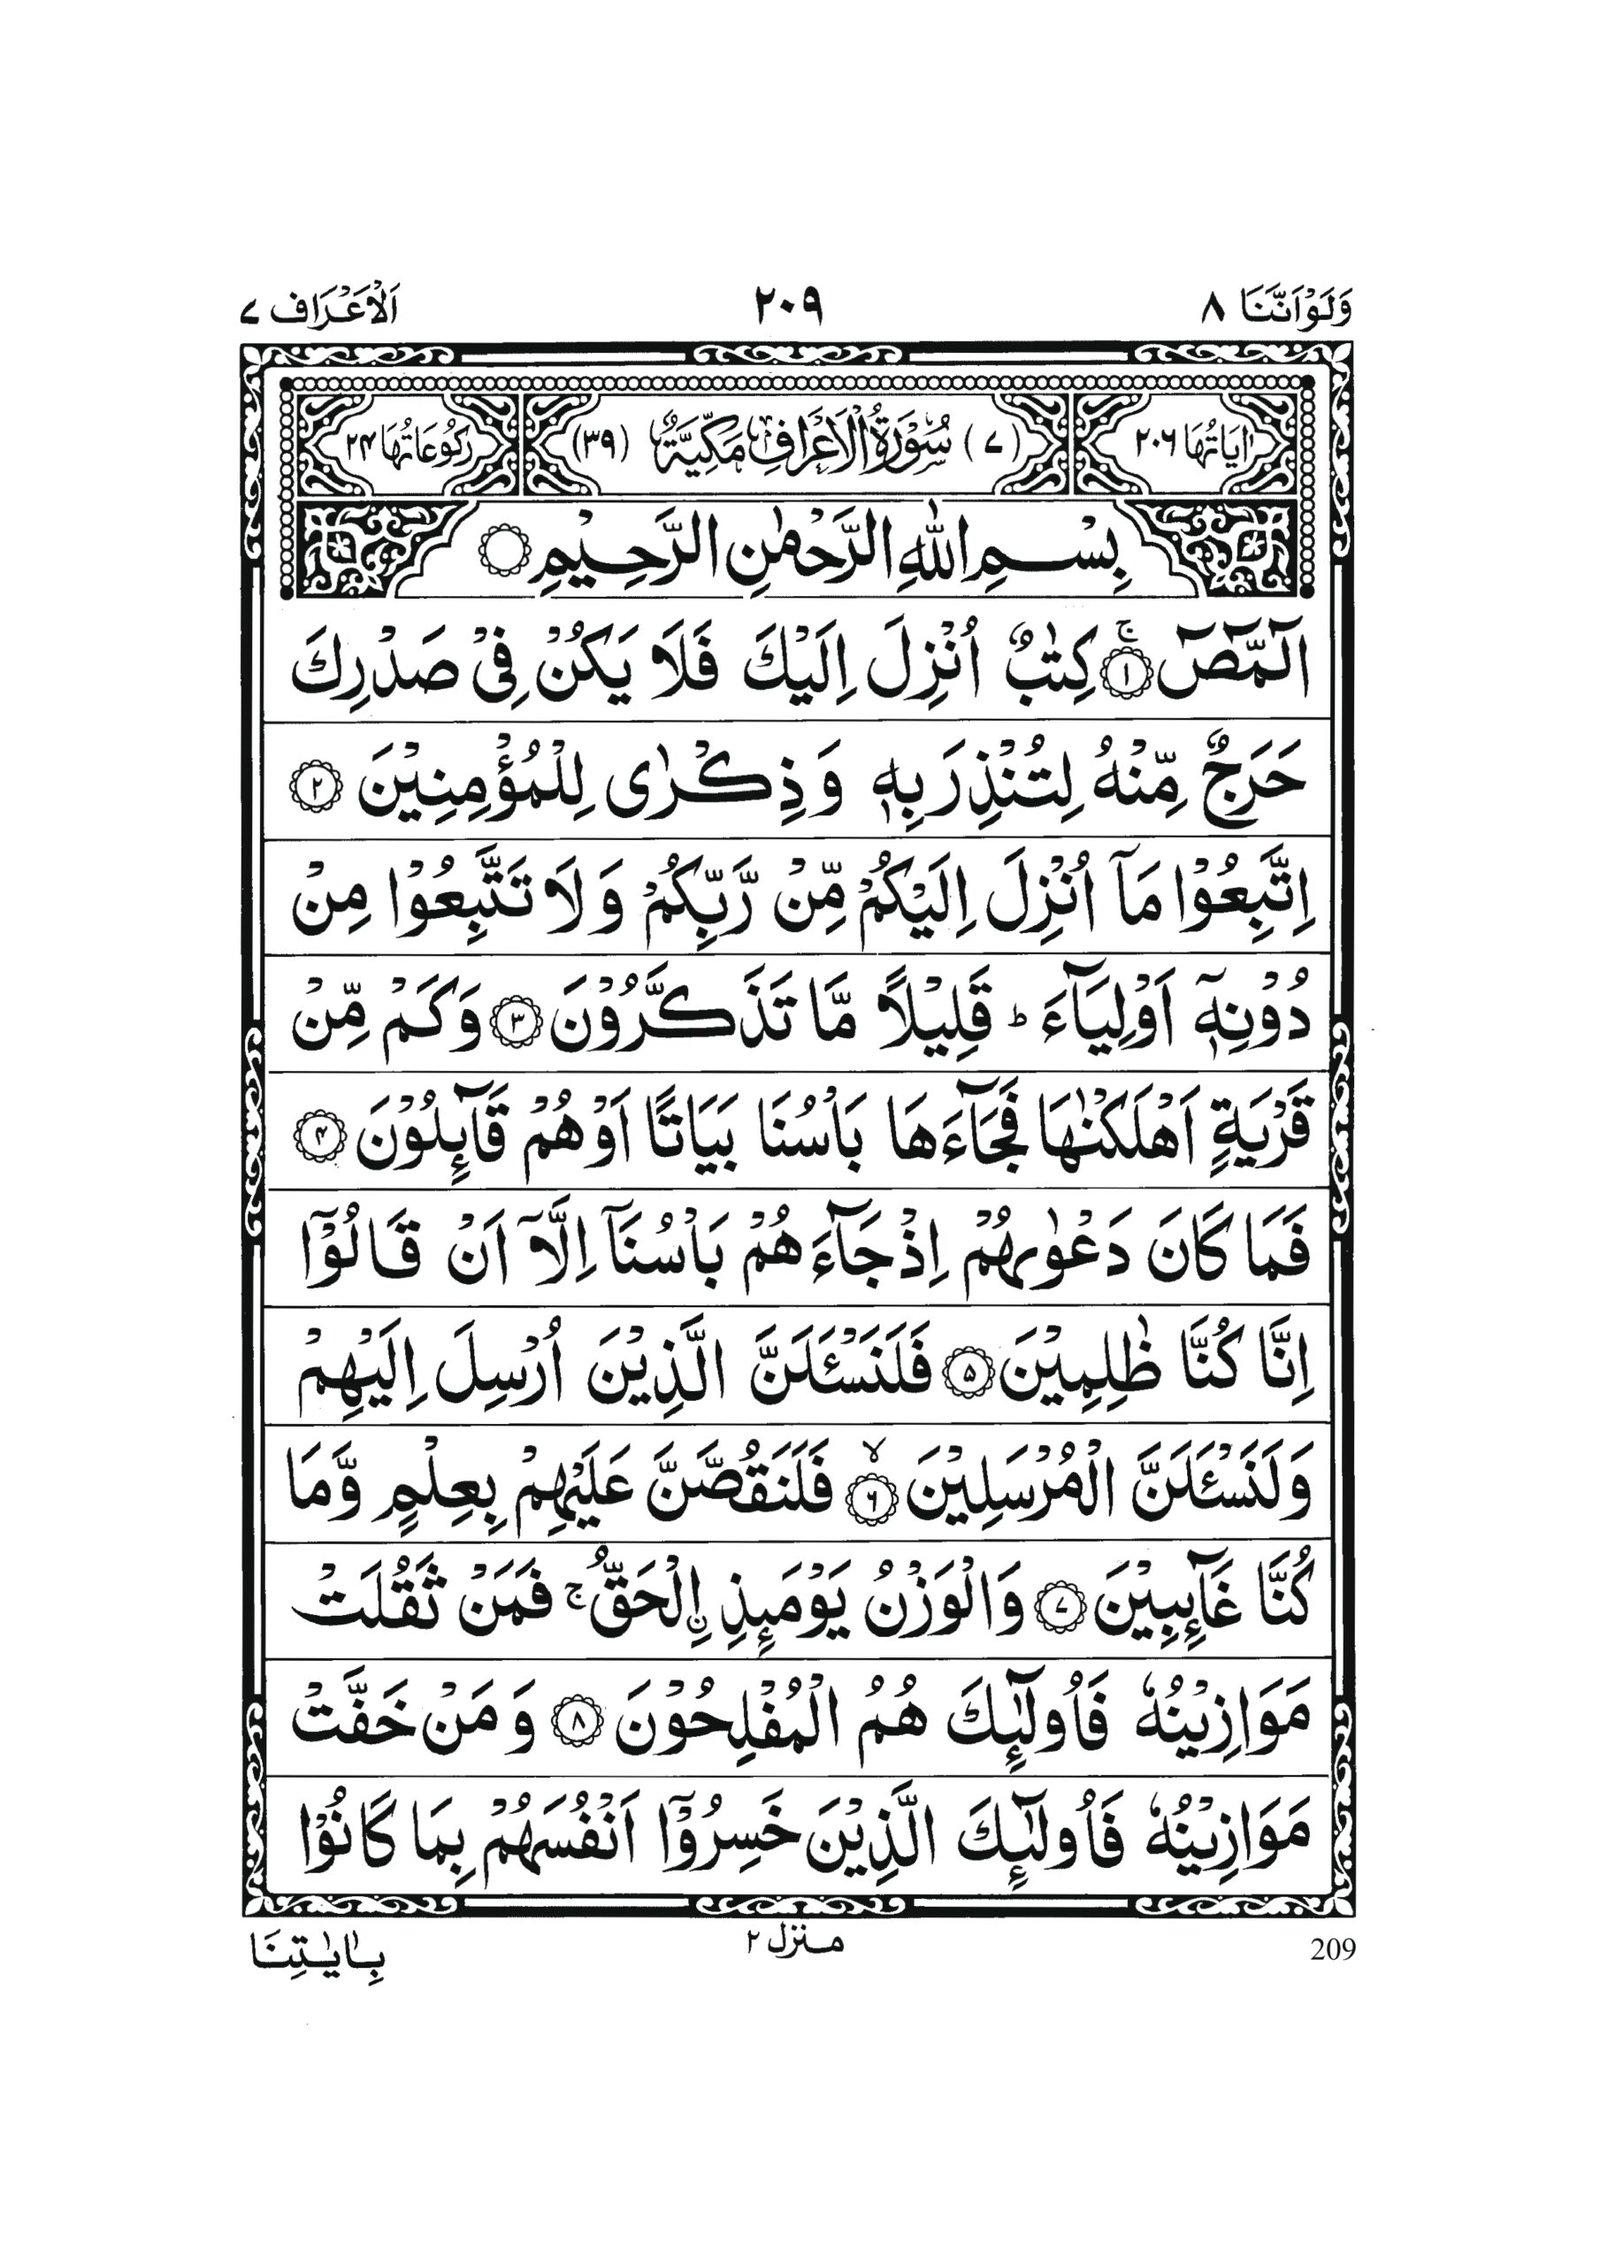 وَلَوْاَنَّنَا ٨ ٢٠٩ اَلْاَعْرَاف ٧
اٰيَاتُهَا ٢٠٦ (٧) سُوْرَةُ الْاَعْرَافِ مَكِّيَّةٌ (٣٩) رَكُوْعَاتُهَا ٢٤
بِسْمِ اللّٰهِ الرَّحْمٰنِ الرَّحِيْمِ
الٓمّٓصٓ ۚ﴿١﴾ كِتٰبٌ اُنْزِلَ اِلَيْكَ فَلَا يَكُنْ فِيْ صَدْرِكَ
حَرَجٌ مِّنْهُ لِتُنْذِرَ بِهٖ وَذِكْرٰى لِلْمُؤْمِنِيْنَ ﴿٢﴾
اِتَّبِعُوْا مَآ اُنْزِلَ اِلَيْكُمْ مِّنْ رَّبِّكُمْ وَلَا تَتَّبِعُوْا مِنْ
دُوْنِهٖٓ اَوْلِيَآءَ ؕ قَلِيْلًا مَّا تَذَكَّرُوْنَ ﴿٣﴾ وَكَمْ مِّنْ
قَرْيَةٍ اَهْلَكْنٰهَا فَجَآءَهَا بَاْسُنَا بَيَاتًا اَوْهُمْ قَآئِلُوْنَ ﴿٤﴾
فَمَا كَانَ دَعْوٰىهُمْ اِذْ جَآءَهُمْ بَاْسُنَآ اِلَّآ اَنْ قَالُوْٓا
اِنَّا كُنَّا ظٰلِمِيْنَ ﴿٥﴾ فَلَنَسْـَٔلَنَّ الَّذِيْنَ اُرْسِلَ اِلَيْهِمْ
وَلَنَسْـَٔلَنَّ الْمُرْسَلِيْنَ ۙ﴿٦﴾ فَلَنَقُصَّنَّ عَلَيْهِمْ بِعِلْمٍ وَّمَا
كُنَّا غَآئِبِيْنَ ﴿٧﴾ وَالْوَزْنُ يَوْمَئِذِ اِ۟لْحَقُّ ۚ فَمَنْ ثَقُلَتْ
مَوَازِيْنُهٗ فَاُولٰٓئِكَ هُمُ الْمُفْلِحُوْنَ ﴿٨﴾ وَمَنْ خَفَّتْ
مَوَازِيْنُهٗ فَاُولٰٓئِكَ الَّذِيْنَ خَسِرُوْٓا اَنْفُسَهُمْ بِمَا كَانُوْا
209 منزل ٢ بِاٰيٰتِنَا